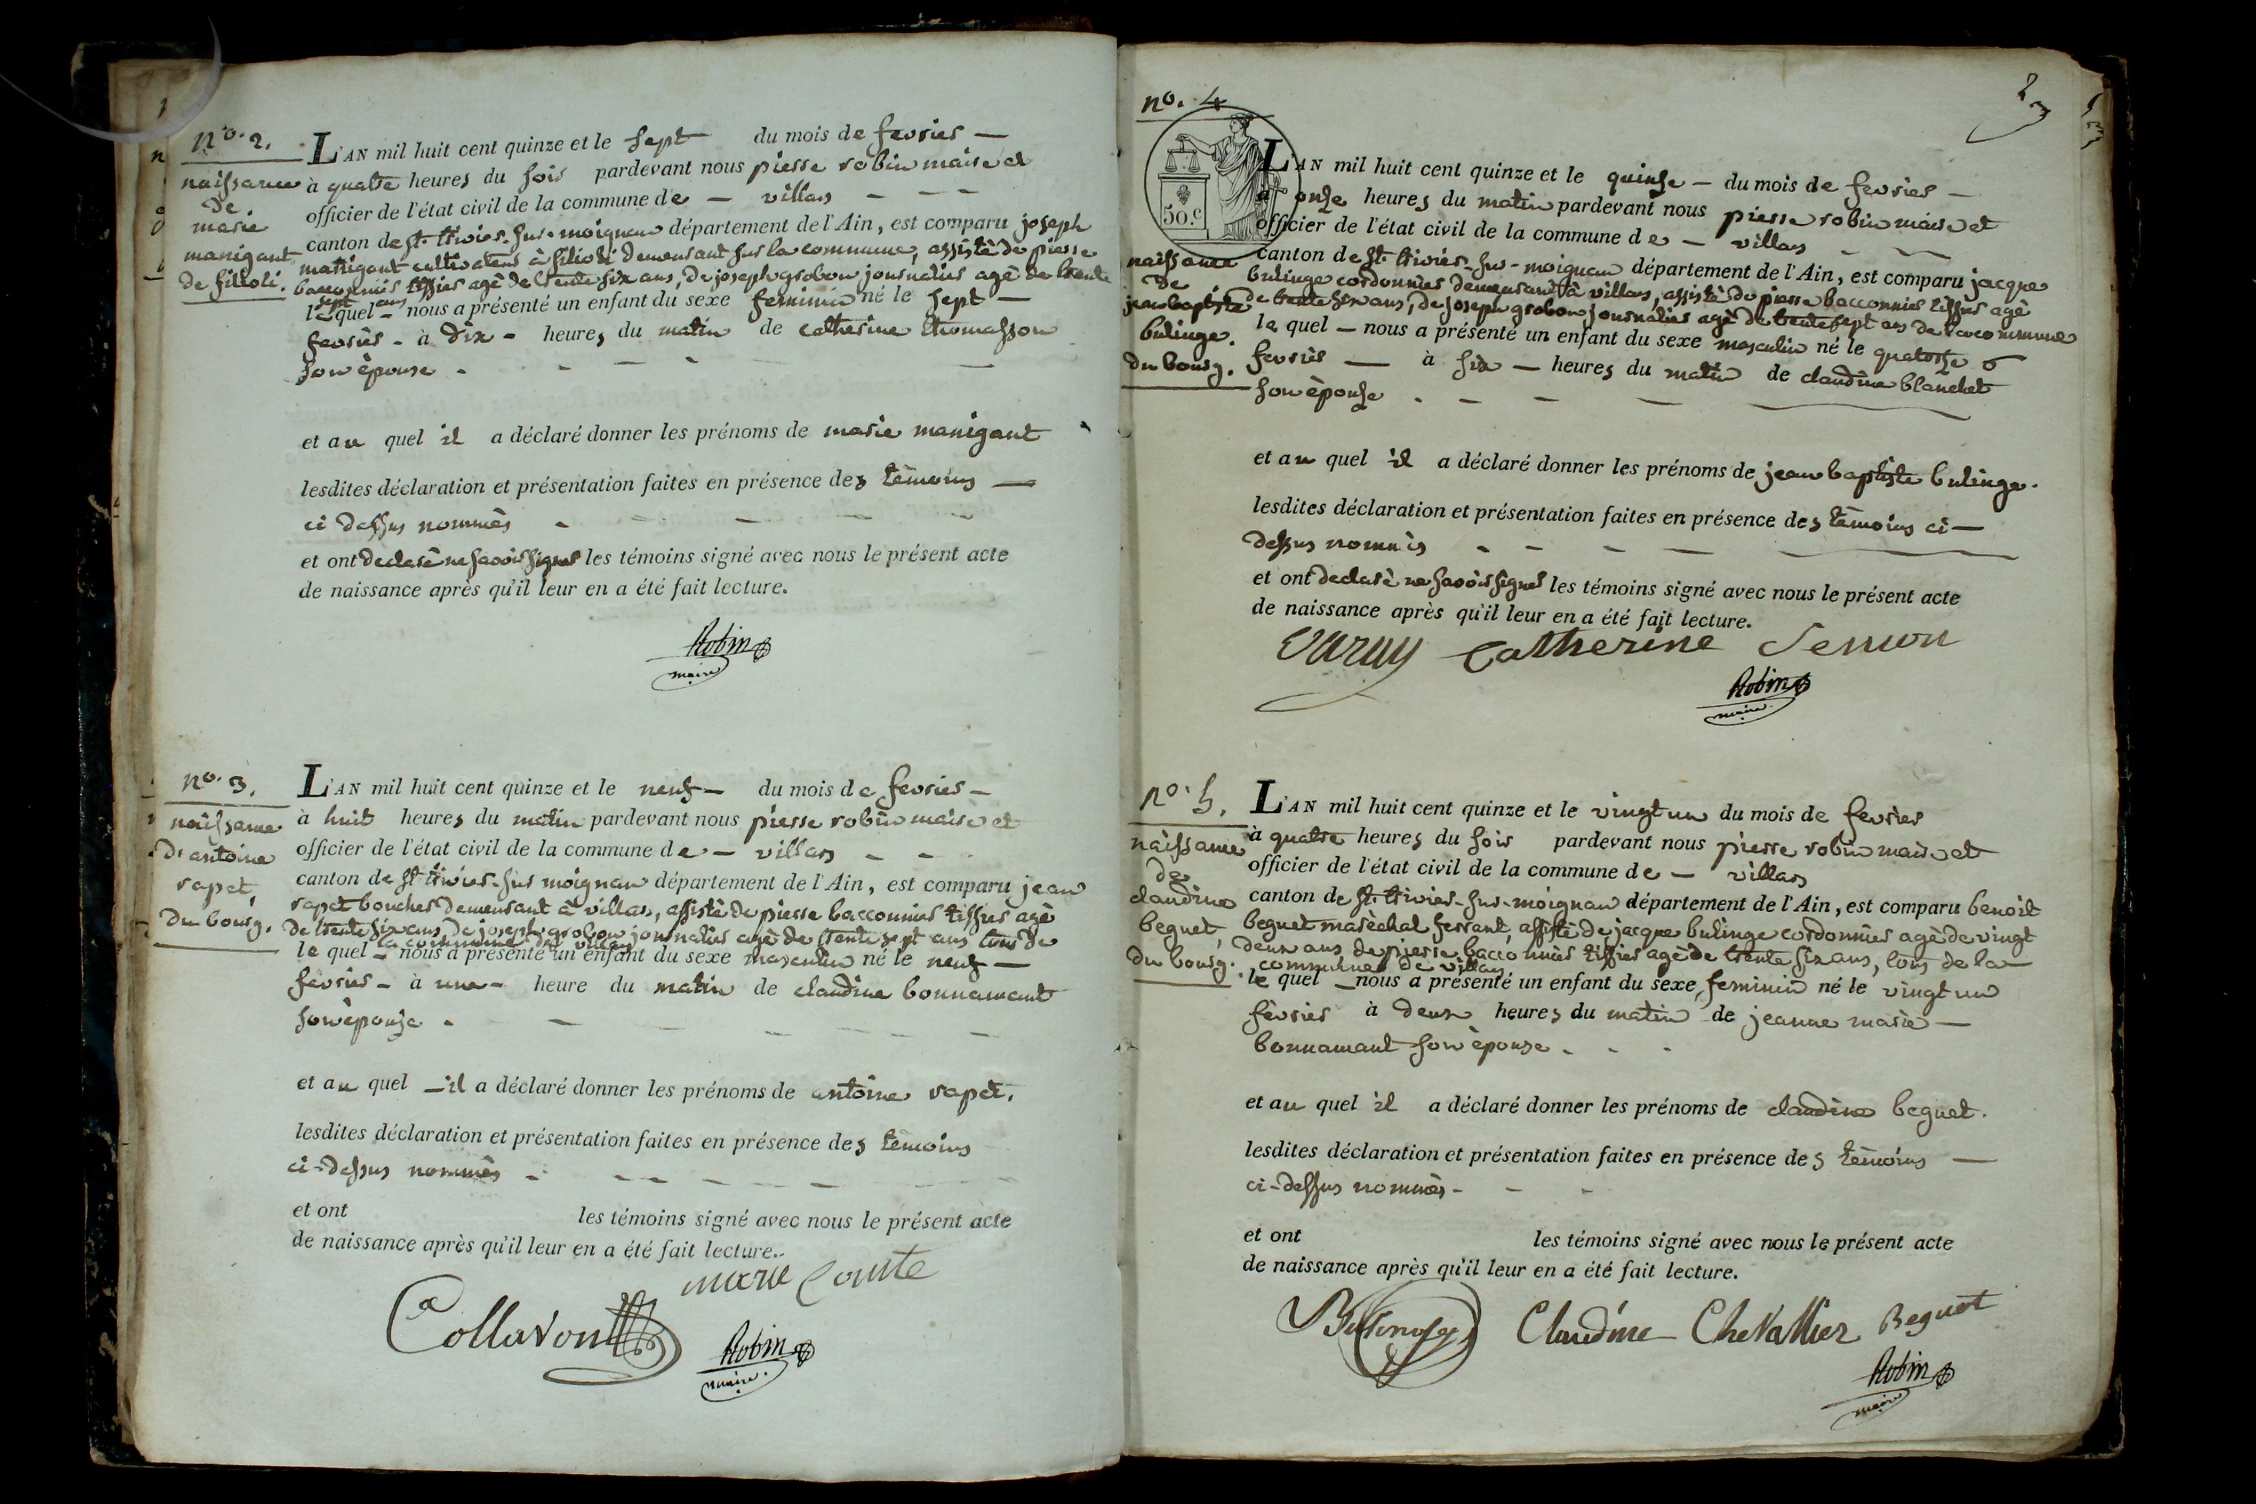 no. 2.
naissance
de
marie
manigant
de filioli.
L'AN mil huit cent quinze et le sept du mois de fevrier —
à quatre heures du soir pardevant nous pierre robin maire et
officier de l'état civil de la commune de — villars — — —
canton de st. trivier-sur-moignan département de l'Ain, est comparu joseph
manigant cultivateur à filioli demeurant sur la commune, assisté de pierre
bacconnier tissier agé de trente six ans, de joseph grobon journalier agé de trente
sept ans
le quel — nous a présenté un enfant du sexe feminin né le sept —
fevrier - à dix - heures du matin de catherine thomasson
son épouse - - — - — —
et au quel il a déclaré donner les prénoms de marie manigant
lesdites déclaration et présentation faites en présence des témoins —
ci dessus nommés - — — — —
et ont declaré ne savoir signer les témoins signé avec nous le présent acte
de naissance après qu'il leur en a été fait lecture.
Robin
maire
no. 3.
naissance
d'antoine
rapet,
du bourg.
L'AN mil huit cent quinze et le neuf — du mois de fevrier —
à huit heures du matin pardevant nous pierre robin maire et
officier de l'état civil de la commune de — villars — —
canton de st. trivier-sur moignan département de l'Ain, est comparu jean
rapet boucher demeurant à villars, assisté de pierre bacconnier tissier agé
de trente six ans, de joseph grobon journalier agé de trente sept ans tous de
la commune de villars
le quel — nous a présenté un enfant du sexe masculin né le neuf —
fevrier - à une - heure du matin de claudine bonnamant
son épouse - — — — — —
et au quel — il a déclaré donner les prénoms de antoine rapet.
lesdites déclaration et présentation faites en présence des témoins
ci-dessus nommés - — — — —
et ont les témoins signé avec nous le présent acte
de naissance après qu'il leur en a été fait lecture.
marie Comte
Collavon
Robin
maire.
2
no. 4
50.c
naissance
de
jean baptiste
bulinge.
du bourg.
L'AN mil huit cent quinze et le quinze — du mois de fevrier —
à onze heures du matin pardevant nous pierre robin maire et
officier de l'état civil de la commune de — villars — — —
canton de st. trivier-sur-moignan département de l'Ain, est comparu jacque
bulinge cordonnier demeurant à villars, assisté de pierre bacconnier tissier agé
de trente six ans, de joseph grobon journalier agé de trente sept ans de la commune
le quel — nous a présenté un enfant du sexe masculin né le quatorze
fevrier — à six — heures du matin de claudine blanchet
son épouse - — — — —
et au quel il a déclaré donner les prénoms de jean baptiste bulinge.
lesdites déclaration et présentation faites en présence des témoins ci —
dessus nommés - - — — —
et ont declaré ne savoir signer les témoins signé avec nous le présent acte
de naissance après qu'il leur en a été fait lecture.
Catherine
Robin
maire.
no. 5.
naissance
de
claudine
beguet,
du bourg.
L'AN mil huit cent quinze et le vingt un du mois de fevrier
à quatre heures du soir pardevant nous pierre robin maire et
officier de l'état civil de la commune de — villars
canton de st. trivier-sur-moignan département de l'Ain, est comparu benoit
beguet maréchal ferrant, assisté de jacque bulinge cordonnier agé de vingt
deux ans de pierre bacconnier tissier agé de trente six ans, tous de la —
commune de villars
le quel — nous a présenté un enfant du sexe feminin né le vingt un
fevrier à deux heures du matin de jeanne marie —
bonnamant son épouse - - -
et au quel il a déclaré donner les prénoms de claudine beguet.
lesdites déclaration et présentation faites en présence des témoins —
ci-dessus nommés - - -
et ont les témoins signé avec nous le présent acte
de naissance après qu'il leur en a été fait lecture.
Claudine Chevallier Beguet
Robin
maire